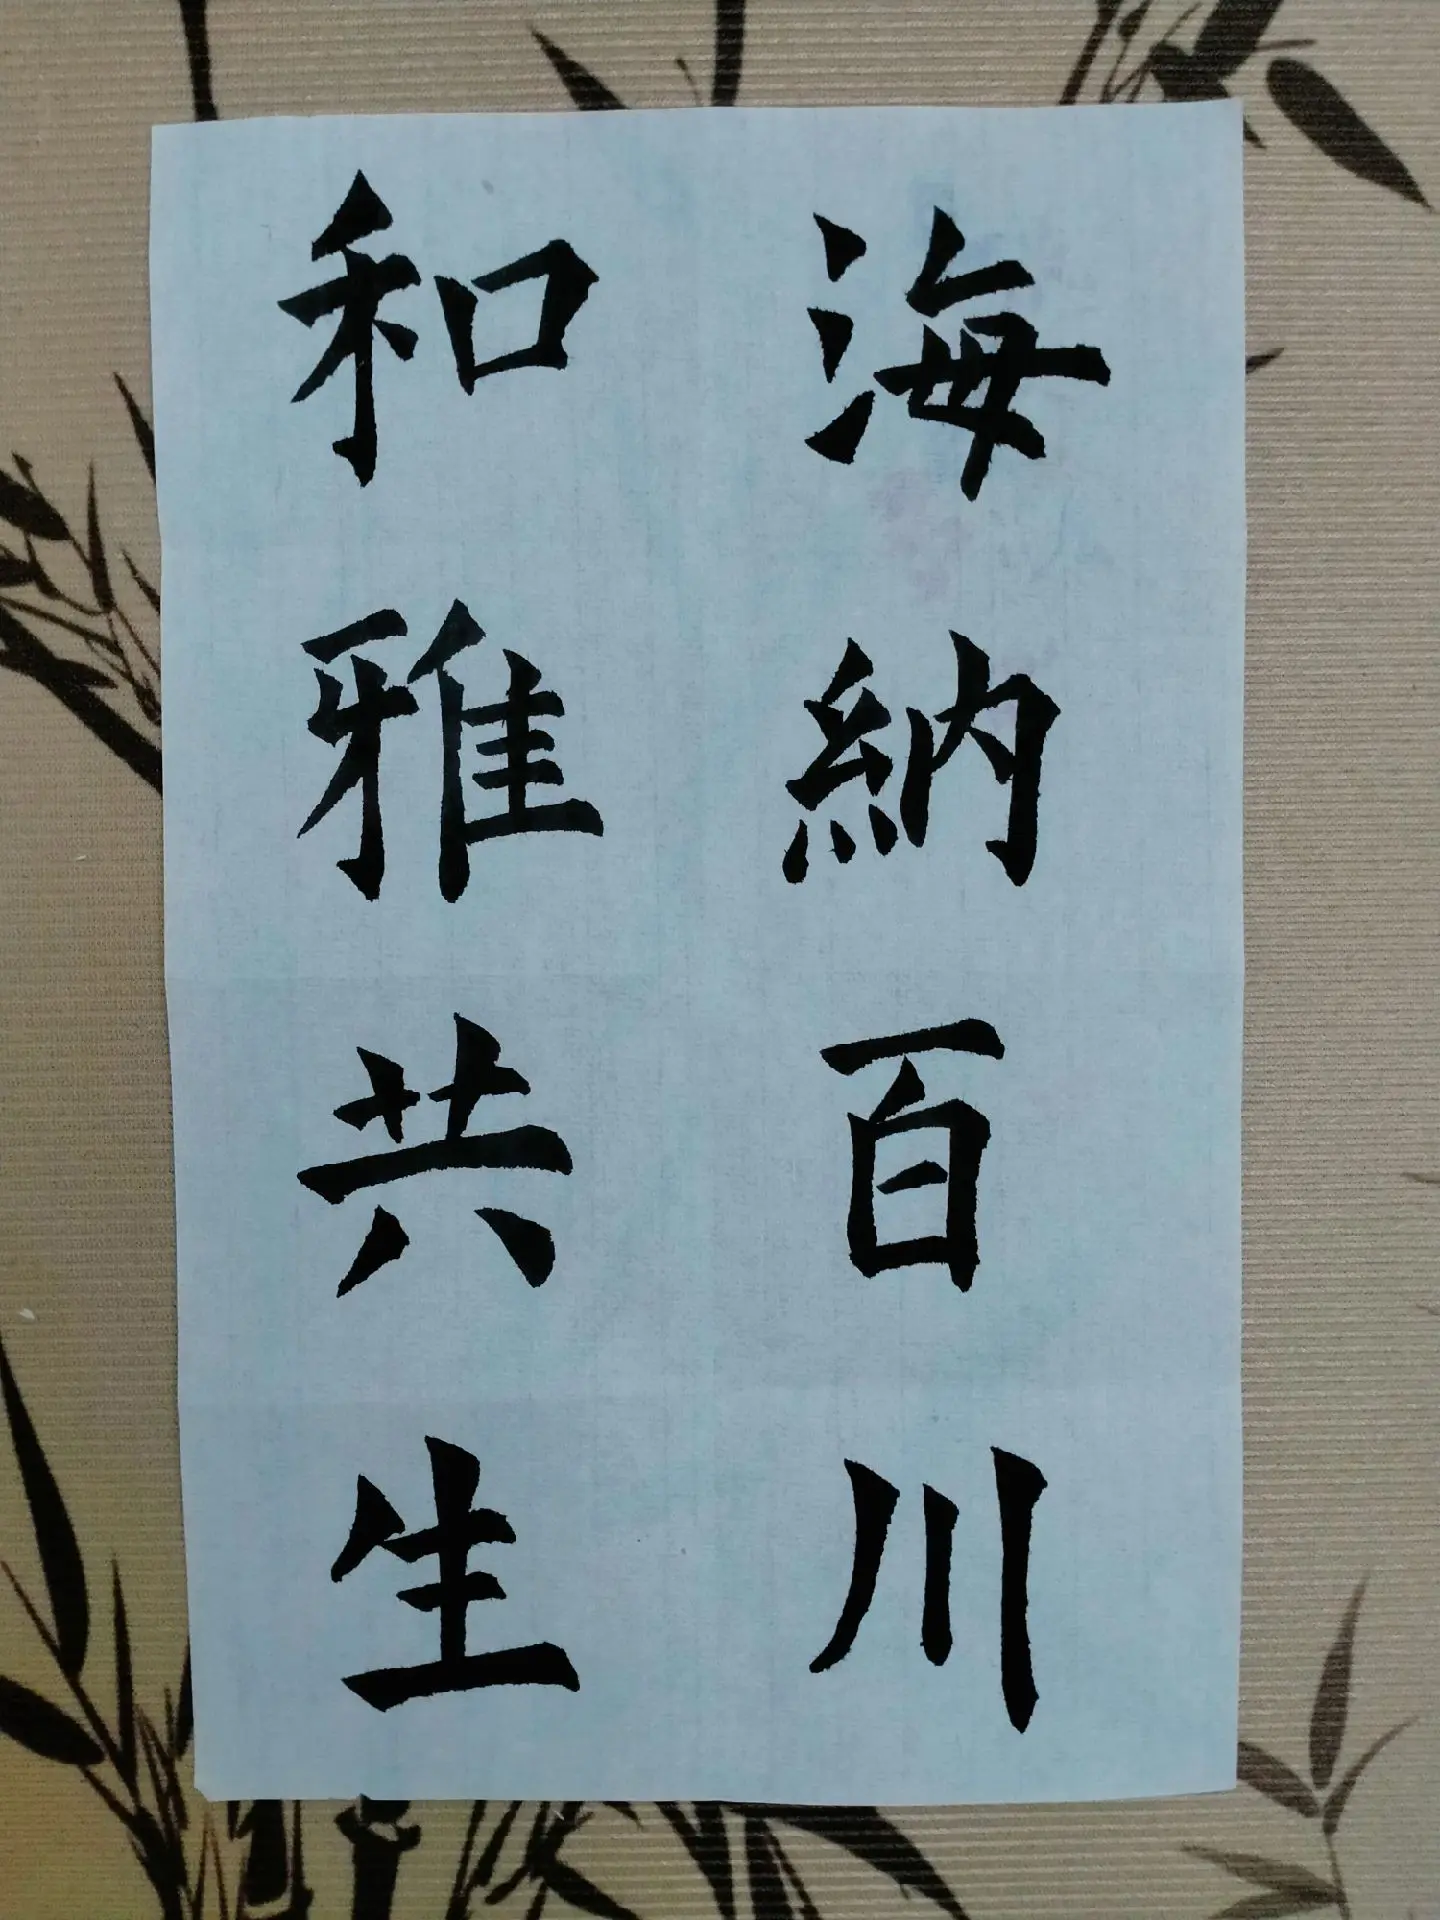 海納百川
和雅共生